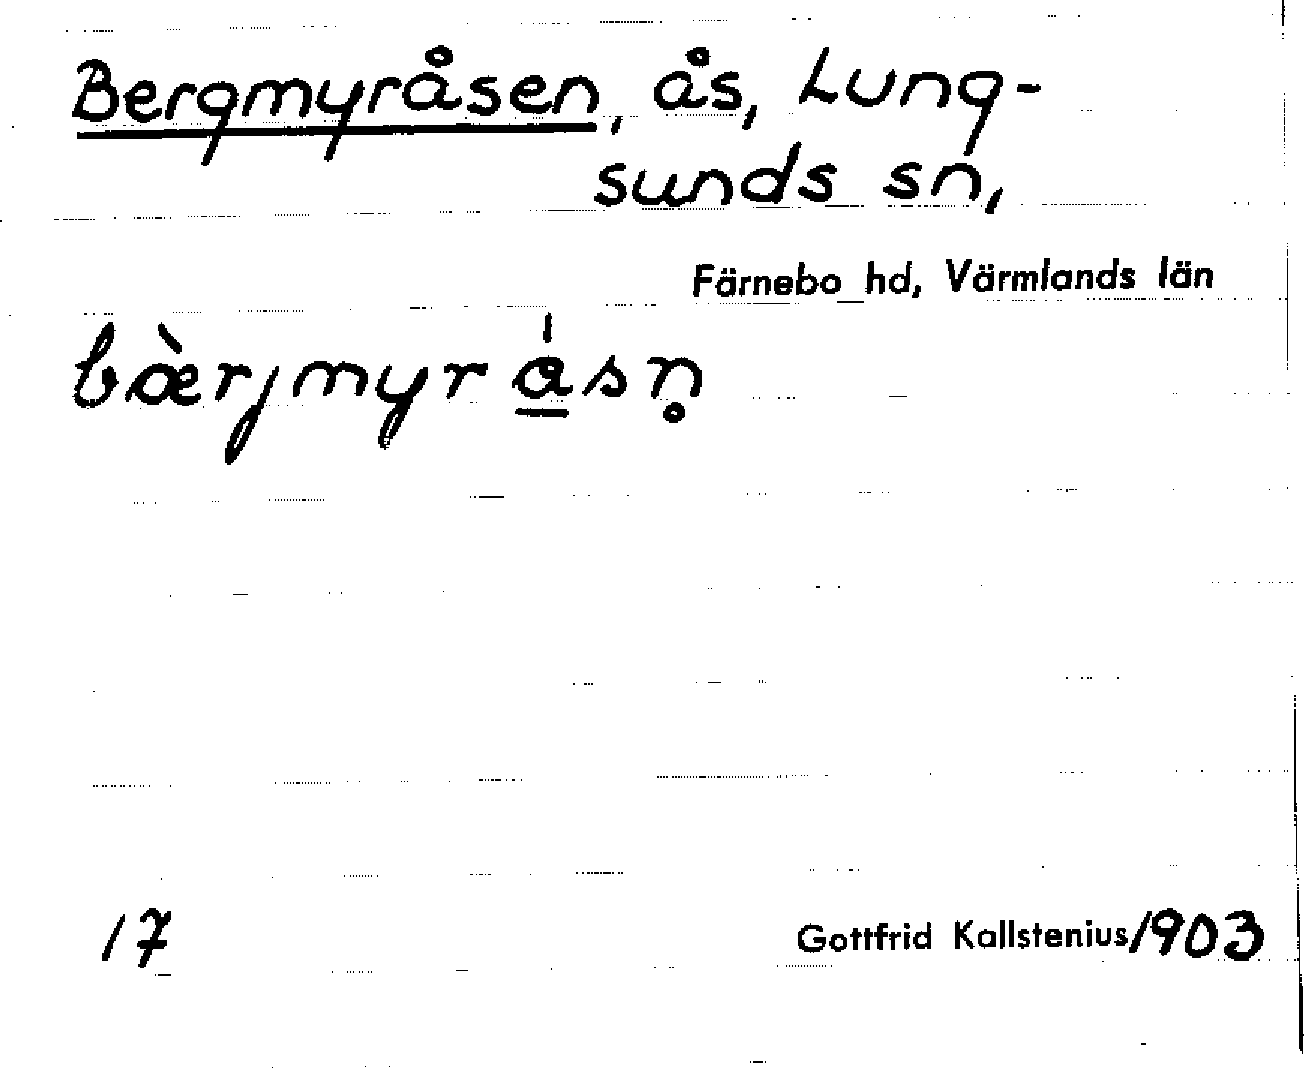 Bergmyråsen, ås, Lung-
sunds sn,
Färnebo hd, Värmlands län
bæ̀rjmyrǻ̲sn̥
17
Gottfrid Kallstenius/1903